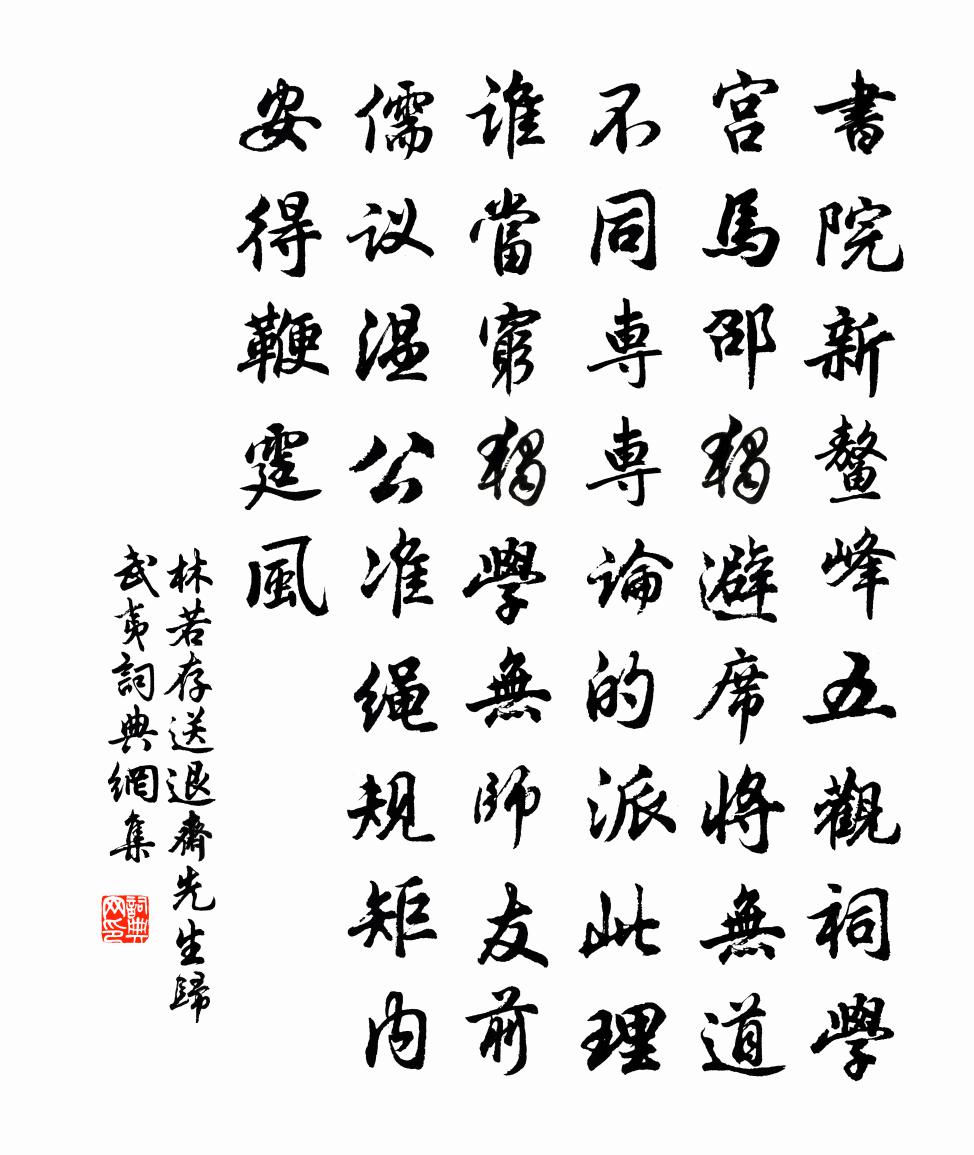 書院新鼇峰五觀祠學
宫馬邵獨避席將無道
不同専専論的派此理
谁當窮獨學無師友前
儒议温公准绳規矩内
安得鞭霆風
林若存送退齋先生歸
武夷詞典網集
詞典
网印